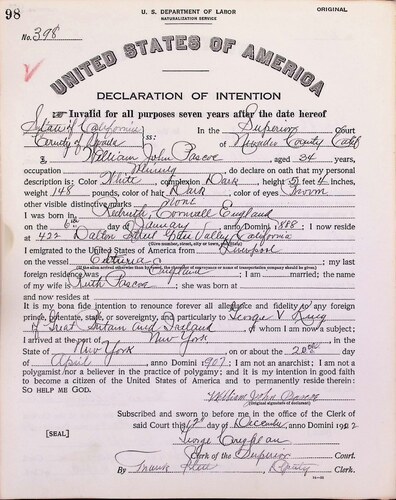 98
U. S. DEPARTMENT OF LABOR
NATURALIZATION SERVICE
ORIGINAL
No. 398
UNITED STATES OF AMERICA
DECLARATION OF INTENTION
Invalid for all purposes seven years after the date hereof
State of California
In the Superior Court
County of Nevada
ss:
of Nevada County Calif
I, William John Pascoe, aged 34 years,
occupation Mining, do declare on oath that my personal
description is: Color White, complexion Dark, height 5 feet 4 inches,
weight 148 pounds, color of hair Dark, color of eyes Brown
other visible distinctive marks None
I was born in Redruth, Cornwall England
on the 6th day of January, anno Domini 1888; I now reside
at 422 Dalton Street Grass Valley, California
(Give number, street, city or town, and State.)
I emigrated to the United States of America from Liverpool
on the vessel; my last
(If the alien arrived otherwise than by vessel, the character of conveyance or name of transportation company should be given.)
foreign residence was England; I am married; the name
of my wife is Ruth Pascoe; she was born at
and now resides at
It is my bona fide intention to renounce forever all allegiance and fidelity to any foreign
prince, potentate, state, or sovereignty, and particularly to George V King
of Great Britain and Ireland, of whom I am now a subject;
I arrived at the port of New York, in the
State of New York, on or about the 20th day
of April, anno Domini 1907; I am not an anarchist; I am not a
polygamist nor a believer in the practice of polygamy; and it is my intention in good faith
to become a citizen of the United States of America and to permanently reside therein:
SO HELP ME GOD.
William John Pascoe
(Original signature of declarant.)
Subscribed and sworn to before me in the office of the Clerk of
said Court this day of December, anno Domini 19
[SEAL]
George
Clerk of the Superior Court.
By Frank, Deputy Clerk.